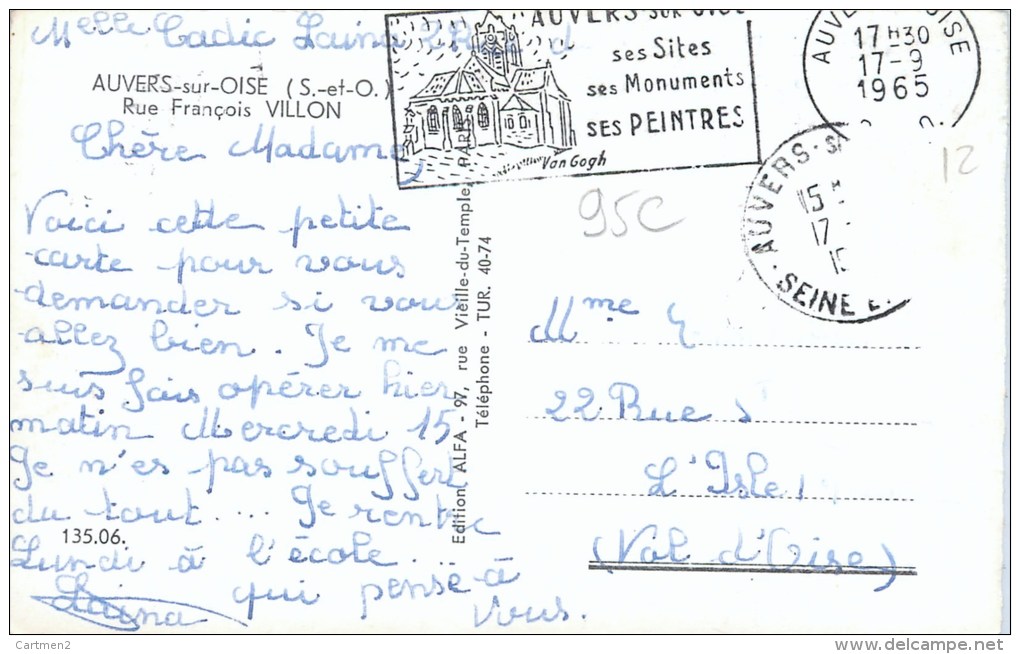 Melle Cadic Laina
AUVERS-sur-OISE (S.-et-O.)
Rue François VILLON
Chère Madame,
Voici cette petite
carte pour vous
demander si vous
allez bien. Je me
suis fais opérer hier
matin Mercredi 15
Je n'es pas souffert
du tout.... Je rentre
Lundi à l'école...
qui pense à
vous.
Laina
135.06.
Edition ALFA - 97, rue Vieille-du-Temple, PARIS
Téléphone - TUR. 40-74
AUVERS-sur-OISE
ses Sites
ses Monuments
SES PEINTRES
Van Gogh
AUVERS OISE
17H30
17-9
1965
AUVERS-S
15H
17-
SEINE E
95C
12
Mme
22 Rue
L'Isle
(Val d'Oise)
Cartmen2
www.delcampe.net